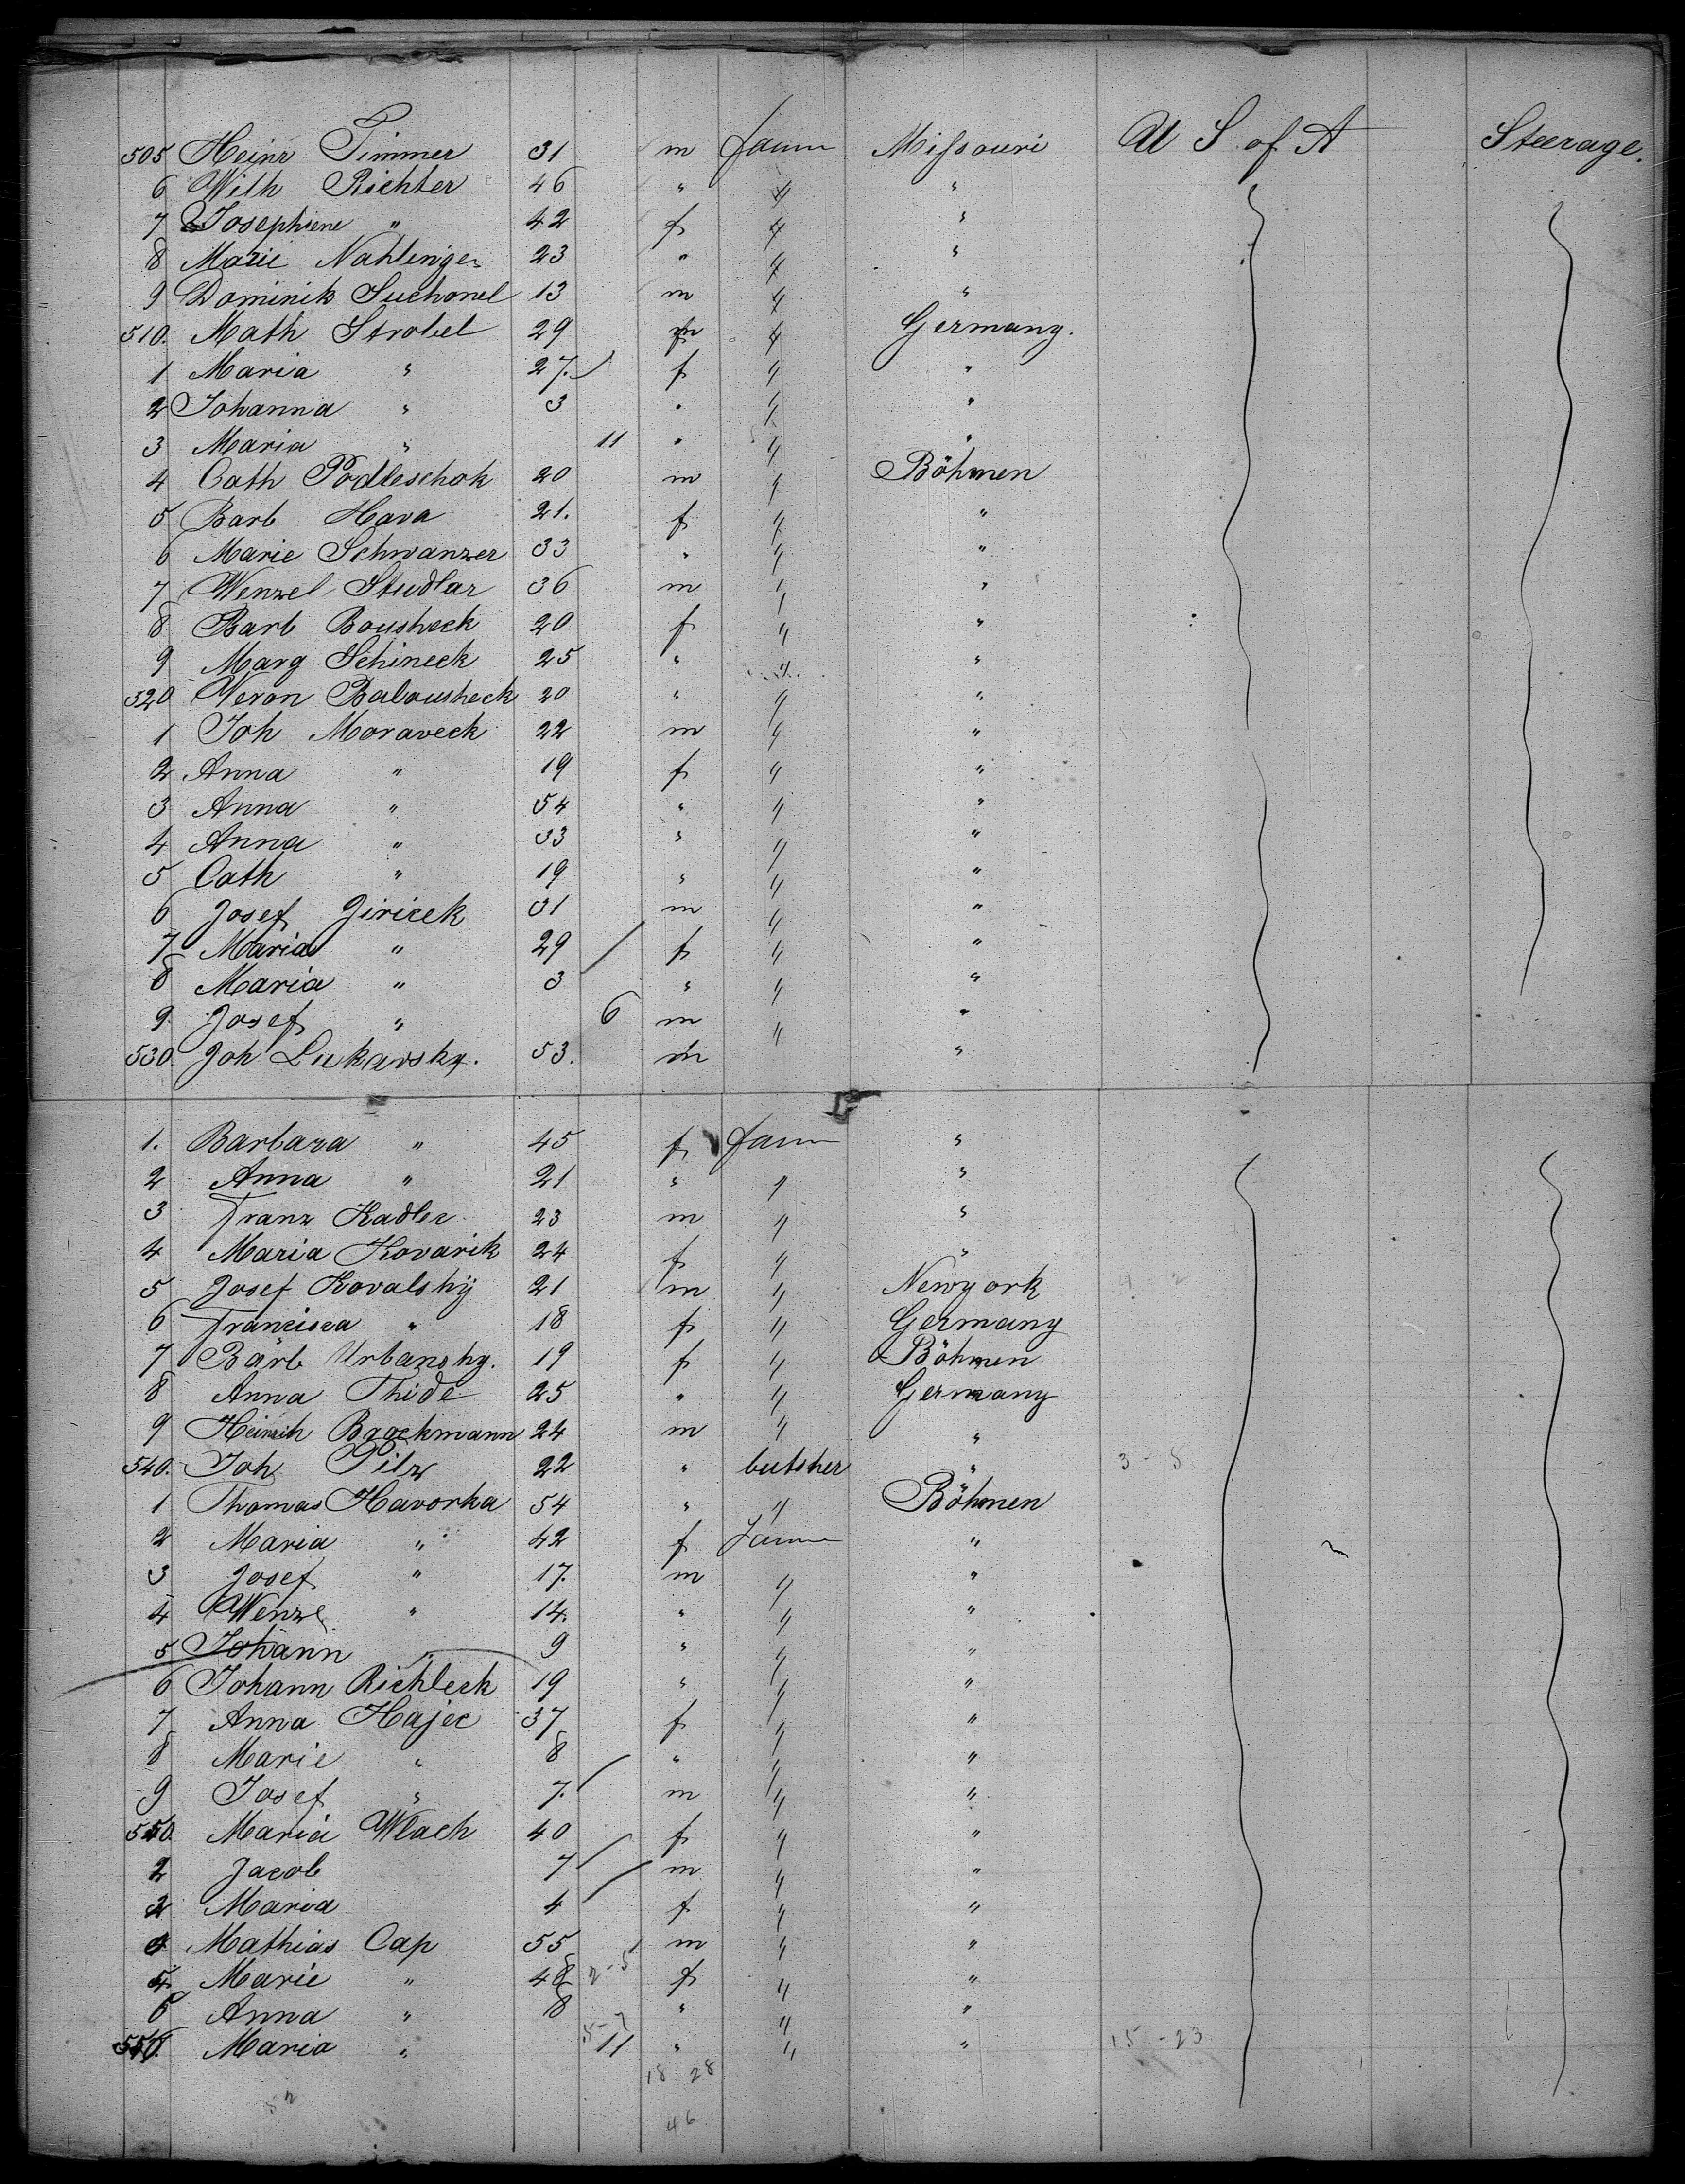 505 Heinr Timmer 31 m farm Missouri U S of A Steerage.
6 Wilh Richter 46 " " "
7 Josephiene " 42 f " "
8 Marie Nahlinger 23 " " "
9 Dominik Suchonel 13 m " "
510. Math Strobel 29 m " Germany.
1 Maria " 27. f " "
2 Johanna " 3 " " "
3 Maria " 11 " " "
4 Cath Podleschok 20 m " Böhmen
5 Barb Hava 21. f " "
6 Marie Schwanzer 33 " " "
7 Wenzel Studlar 36 m " "
8 Barb Bousheck 20 f " "
9 Marg Schineck 25 " " "
520 Veron Balousheck 20 " " "
1 Joh Moraveck 22 m " "
2 Anna " 19 f " "
3 Anna " 54 " " "
4 Anna " 33 " " "
5 Cath " 19 " " "
6 Josef Jiricek 31 m " "
7 Maria " 29 f " "
8 Maria " 3 " " "
9. Josef " 6 m " "
530. Joh Lukavsky. 53. m "
1. Barbara " 45 f farm "
2 Anna " 21 " " "
3 Franz Kadlec 23 m " "
4 Maria Kovarik 24 f " "
5 Josef Kovalskÿ 21 m " Newyork
6 Francisca " 18 f " Germany
7 Barb Urbansky. 19 f " Böhmen
8 Anna Thide 25 " " Germany
9 Heinrich Brockmann 24 m " "
540. Joh Pilz 22 " butsher " 3 - 8
1 Thomas Havorka 54 " " Böhmen
2 Maria " 42 f farm "
3 Josef " 17. m " "
4 Wenzl " 14. " " "
5 Johann " 9 " " "
6 Johann Richleck 19 " " "
7 Anna Hajec 37 f " "
8 Marie " 8 " " "
9 Josef " 7. m " "
550. Maria Wlach 40 f " "
2 Jacob 7 m " "
2 Maria 4 f " "
4 Mathias Cap 55 m " "
5. Marie " 48 2-5 f " "
6 Anna " 8 " " "
Maria " 5-7 11 " " " 15 - 23
18 28
46